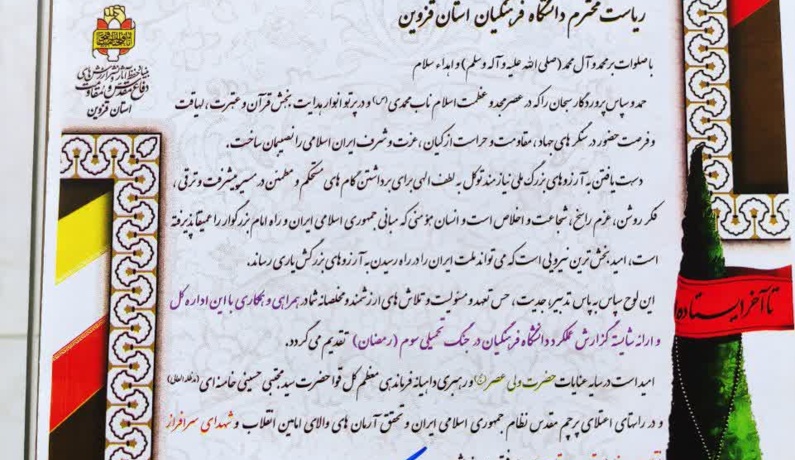 ریاست محترم دانشگاه فرهنگیان استان قزوین
بنیاد حفظ آثار و نشر ارزش‌های
دفاع مقدس و مقاومت
استان قزوین
با صلوات بر محمد و آل محمد (صلی الله علیه و آله وسلم) و اهداء سلام
حمد و سپاس پروردگار سبحان را که در عصر مجد و عظمت اسلام ناب محمدی (ص) و در پرتو انوار هدایت بخش قرآن و عترت، لیاقت
و فرصت حضور در سنگرهای جهاد، مقاومت و حراست از کیان، عزت و شرف ایران اسلامی را نصیبمان ساخت.
دست یافتن به آرزوهای بزرگ ملی نیازمند توکل به لطف الهی برای برداشتن گام های مستحکم و مطمئن در مسیر پیشرفت و ترقی،
فکر روشن، عزم راسخ، شجاعت و اخلاص است و انسان مؤمنی که مبانی جمهوری اسلامی ایران و راه امام بزرگوار را عمیقا پذیرفته
است، امیدبخش ترین نیرویی است که می تواند ملت ایران را در راه رسیدن به آرزوهای بزرگش یاری رساند.
این لوح سپاس به پاس تدبیر، جدیت، حس تعهد و مسئولیت و تلاش های ارزشمند و مخلصانه شما در همراهی و همکاری با این اداره کل
و ارائه شایسته گزارش عملکرد دانشگاه فرهنگیان در جنگ تحمیلی سوم (رمضان) تقدیم می گردد.
امید است در سایه عنایات حضرت ولی عصر (عج) و رهبری داهیانه فرماندهی معظم کل قوا حضرت سید مجتبی حسینی خامنه ای (مدظله العالی)
و در راستای اعتلای پرچم مقدس نظام جمهوری اسلامی ایران و تحقق آرمان های والای امامین انقلاب و شهدای سرافراز
تا آخر ایستاده‌ا